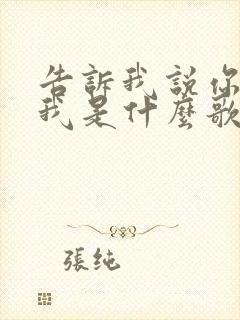 告訴我說你
我是什麼歌
張純